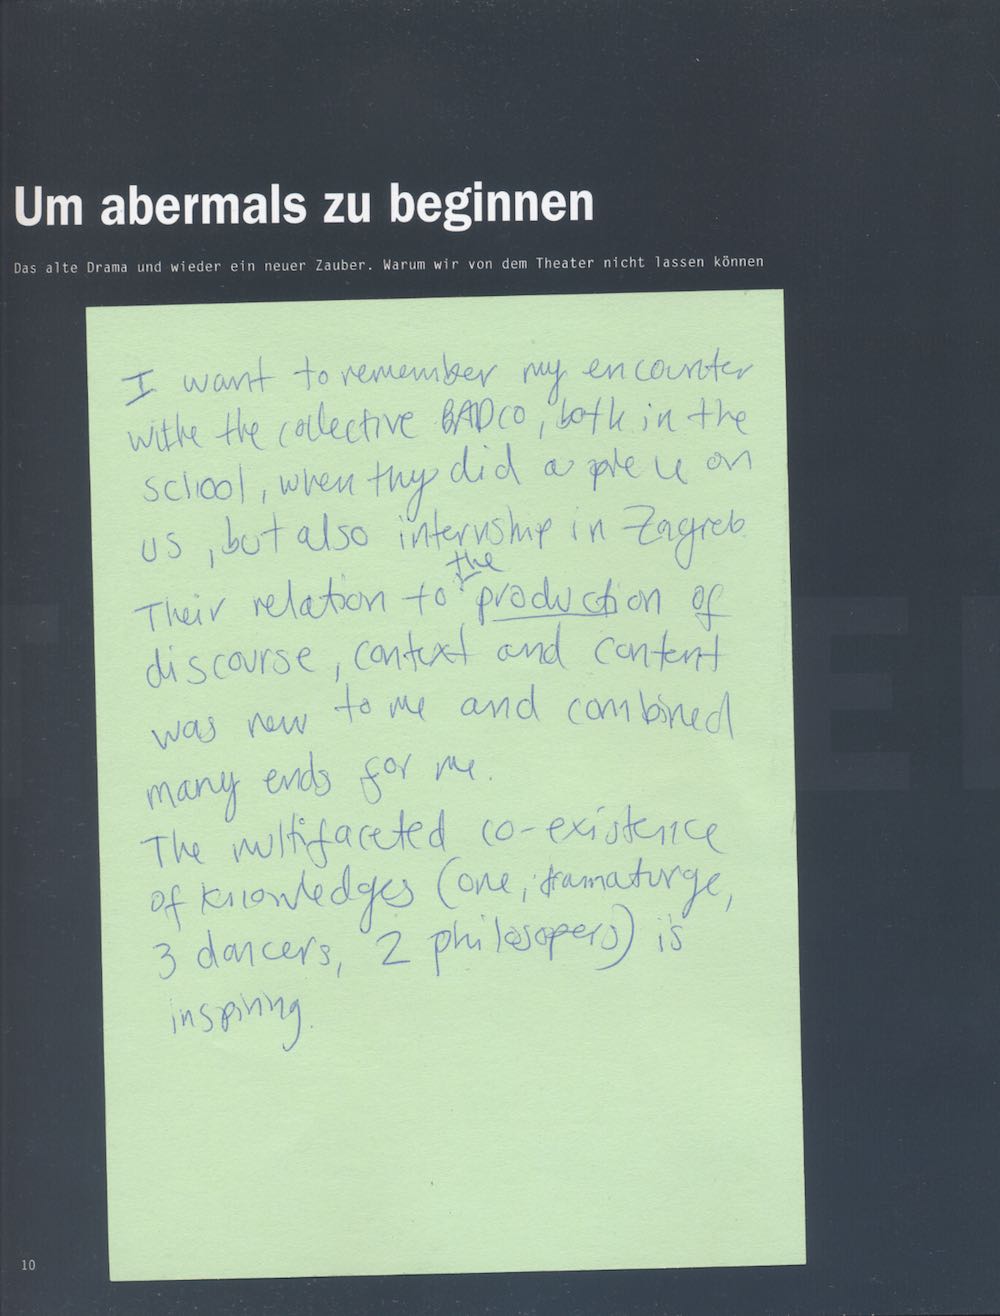 Um abermals zu beginnen
Das alte Drama und wieder ein neuer Zauber. Warum wir von dem Theater nicht lassen können
I want to remember my encounter
withe the collective BADco, both in the
school, when thy did a piece on
us, but also internship in Zagreb.
the
Their relation to production of
discourse, context and content
was new to me and combined
many ends for me.
The multifaceted co-existence
of knowledges (one, dramaturge,
3 dancers, 2 philosopers) is
inspiring.
10